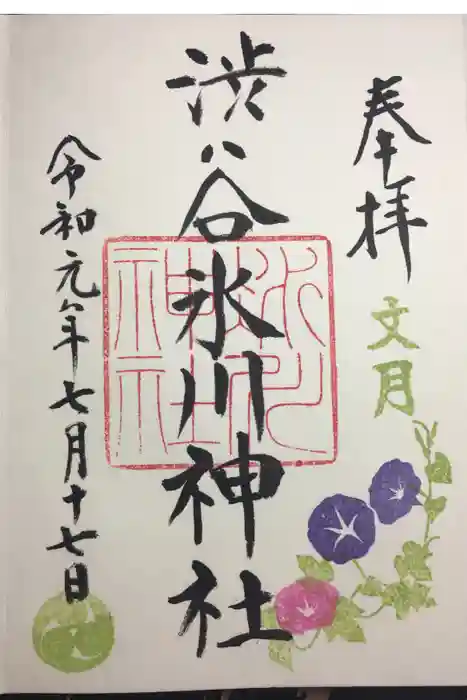 奉拝
文月
渋谷氷川神社
令和元年七月十七日